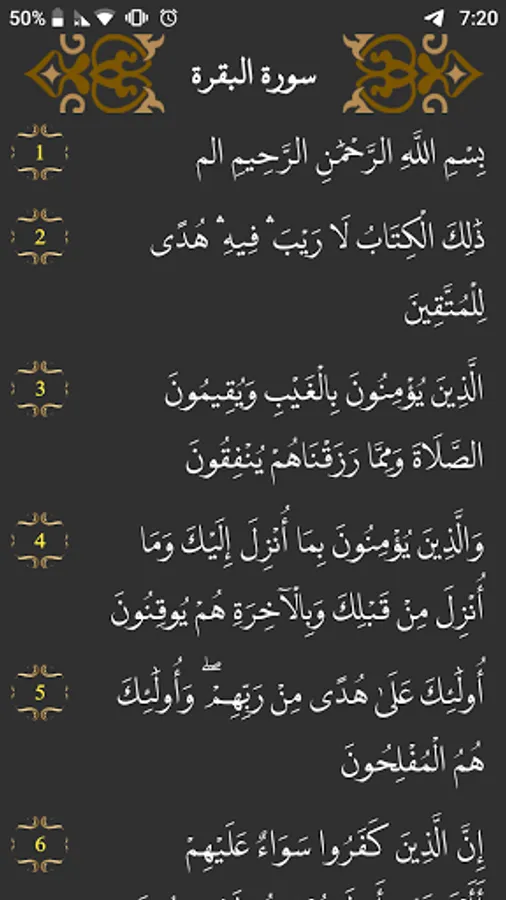 50%
7:20
سورة البقرة
1
بِسْمِ اللَّهِ الرَّحْمَٰنِ الرَّحِيمِ الم
2
ذَٰلِكَ الْكِتَابُ لَا رَيْبَ ۛ فِيهِ ۛ هُدًى
لِلْمُتَّقِينَ
3
الَّذِينَ يُؤْمِنُونَ بِالْغَيْبِ وَيُقِيمُونَ
الصَّلَاةَ وَمِمَّا رَزَقْنَاهُمْ يُنْفِقُونَ
4
وَالَّذِينَ يُؤْمِنُونَ بِمَا أُنْزِلَ إِلَيْكَ وَمَا
أُنْزِلَ مِنْ قَبْلِكَ وَبِالْآخِرَةِ هُمْ يُوقِنُونَ
5
أُولَٰئِكَ عَلَىٰ هُدًى مِنْ رَبِّهِمْ ۖ وَأُولَٰئِكَ
هُمُ الْمُفْلِحُونَ
6
إِنَّ الَّذِينَ كَفَرُوا سَوَاءٌ عَلَيْهِمْ